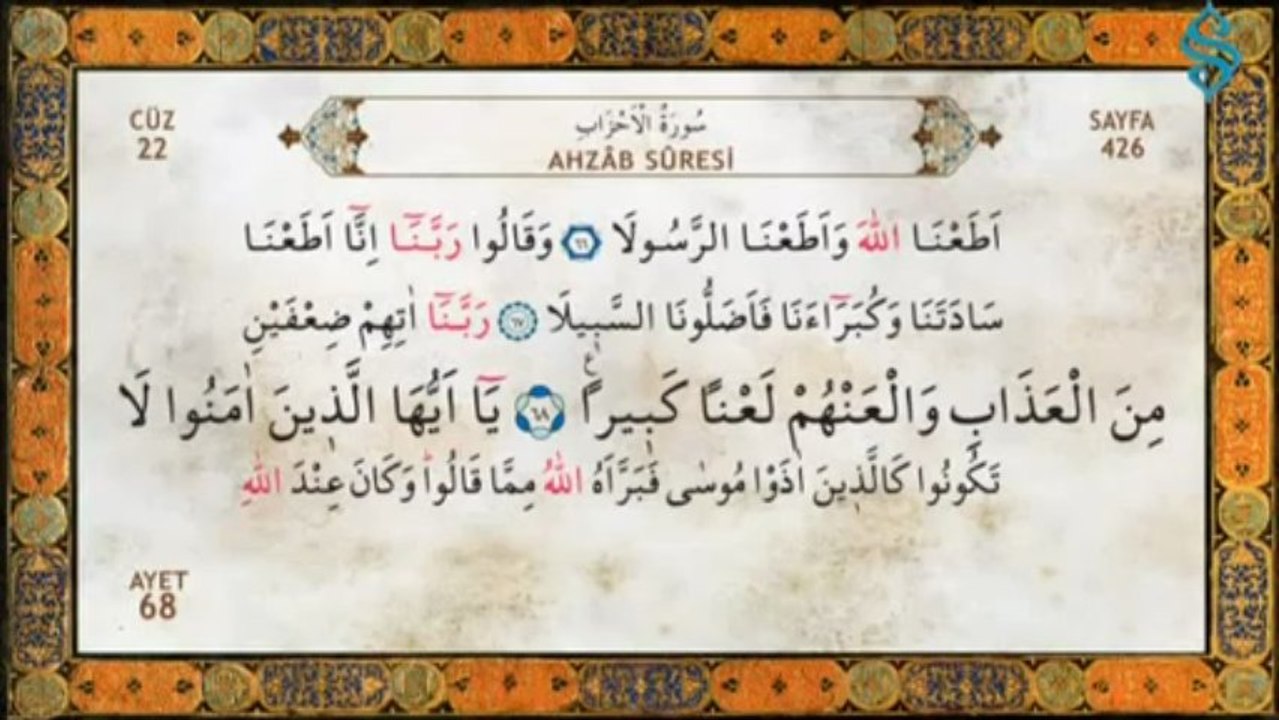 CÜZ
22
سُورَةُ الْاَحْزَابِ
AHZÂB SÛRESİ
SAYFA
426
اَطَعْنَا اللّٰهَ وَاَطَعْنَا الرَّسُولَا ﴿٦٦﴾ وَقَالُوا رَبَّنَٓا اِنَّٓا اَطَعْنَا
سَادَتَنَا وَكُبَرَٓاءَنَا فَاَضَلُّونَا السَّب۪يلَا ﴿٦٧﴾ رَبَّنَٓا اٰتِهِمْ ضِعْفَيْنِ
مِنَ الْعَذَابِ وَالْعَنْهُمْ لَعْنًا كَب۪يرًاۚ ﴿٦٨﴾ يَٓا اَيُّهَا الَّذ۪ينَ اٰمَنُوا لَا
تَكُونُوا كَالَّذ۪ينَ اٰذَوْا مُوسٰى فَبَرَّاَهُ اللّٰهُ مِمَّا قَالُواۜ وَكَانَ عِنْدَ اللّٰهِ
AYET
68